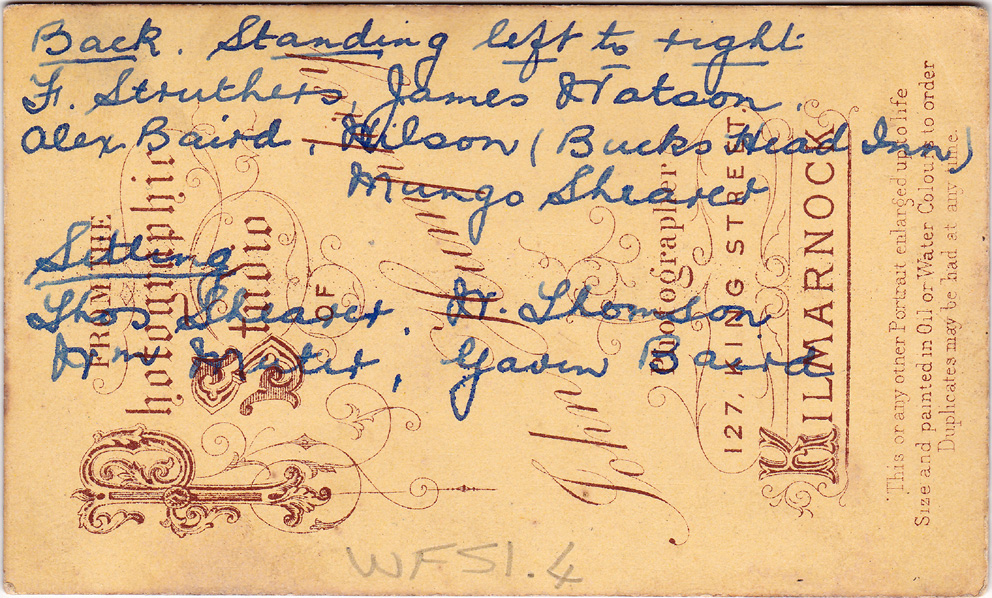 Back. Standing left to right
F. Struthers, James Watson.
Alex. Baird, Wilson (Bucks Head Inn)
Mungo Shearer
Sitting
Thos Shearer, W. Thomson
Wm Muter, Gavin Baird
WFS1.4
FROM THE
Photographic
Studio
OF
John
Photographer
127, KING STREET.
KILMARNOCK
This or any other Portrait enlarged up to life
Size and painted in Oil or Water Colours to order
Duplicates may be had at any time.